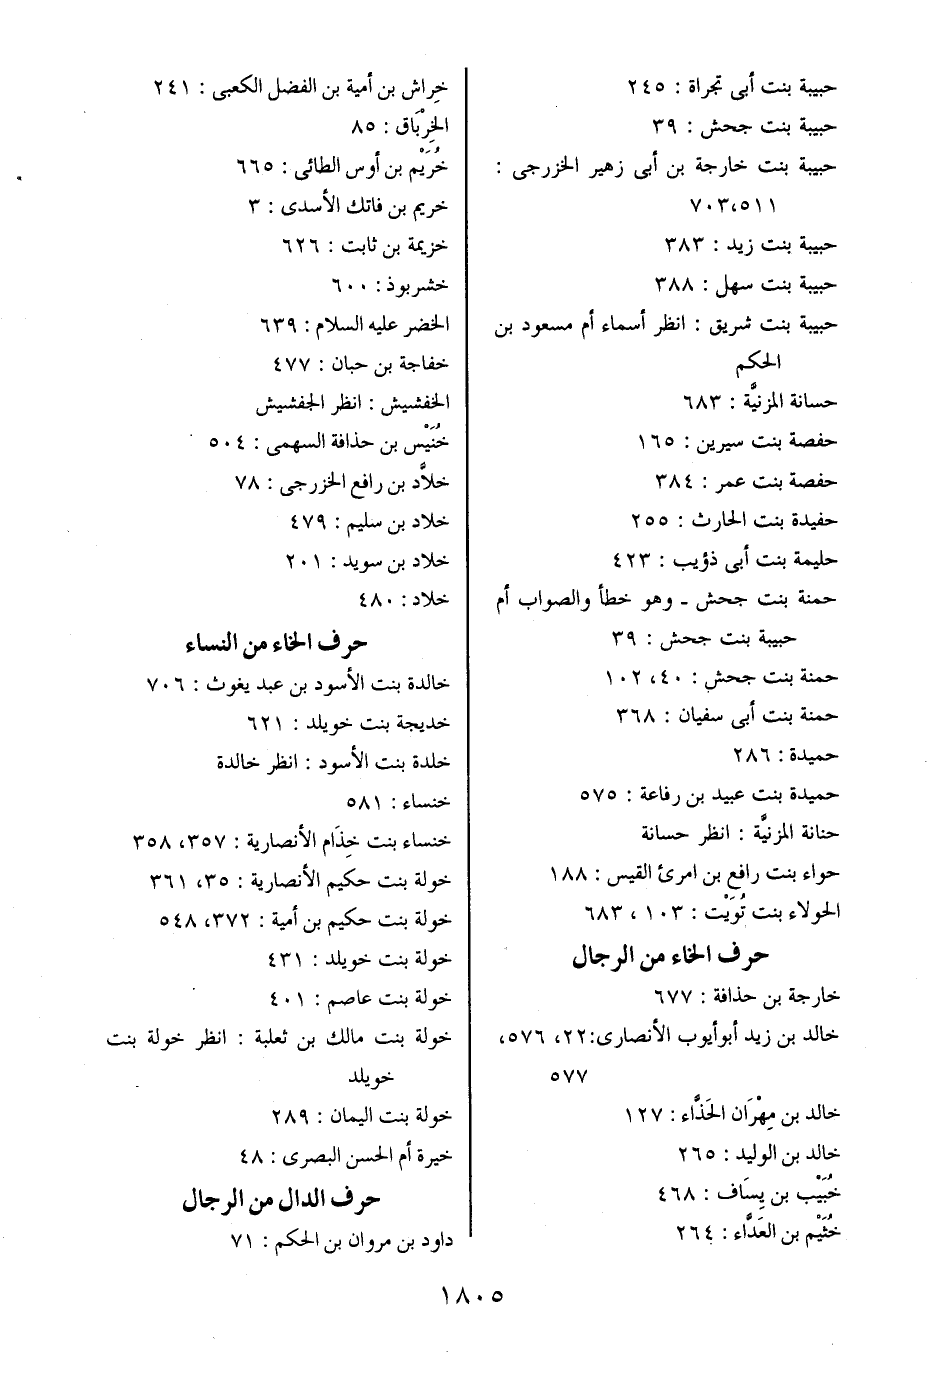 حبيبة بنت أبى تجراة : ٢٤٥
حبيبة بنت جحش : ٣٩
حبيبة بنت خارجة بن أبى زهير الخزرجى :
٥١١،٧٠٣
حبيبة بنت زيد : ٣٨٣
حبيبة بنت سهل : ٣٨٨
حبيبة بنت شريق : انظر أسماء أم مسعود بن
الحكم
حسانة المزنيَّة : ٦٨٣
حفصة بنت سيرين : ١٦٥
حفصة بنت عمر : ٣٨٤
حفيدة بنت الحارث : ٢٥٥
حليمة بنت أبى ذؤيب : ٤٢٣
حمنة بنت جحش ـ وهو خطأ والصواب أم
حبيبة بنت جحش : ٣٩
حمنة بنت جحش : ٤٠، ١٠٢
حمنة بنت أبى سفيان : ٣٦٨
حميدة : ٢٨٦
حميدة بنت عبيد بن رفاعة : ٥٧٥
حنانة المزنيَّة : انظر حسانة
حواء بنت رافع بن امرئ القيس : ١٨٨
الحولاء بنت تُوَيْت : ١٠٣ ، ٦٨٣
حرف الخاء من الرجال
خارجة بن حذافة : ٦٧٧
خالد بن زيد أبوأيوب الأنصارى:٢٢، ٥٧٦،
٥٧٧
خالد بن مِهْرَان الحَذَّاء : ١٢٧
خالد بن الوليد : ٢٦٥
خُبَيْب بن يِسَاف : ٤٦٨
خُثَيْم بن العَدَّاء : ٢٦٤
خِراش بن أمية بن الفضل الكعبى : ٢٤١
الخِرْبَاق : ٨٥
خُرَيْم بن أوس الطائى : ٦٦٥
خريم بن فاتك الأسدى : ٣
خزيمة بن ثابت : ٦٢٦
خشربوذ : ٦٠٠
الخضر عليه السلام : ٦٣٩
خفاجة بن حبان : ٤٧٧
الخفشيش : انظر الجفشيش
خُنَيْس بن حذافة السهمى : ٥٠٤
خلاَّد بن رافع الخزرجى : ٧٨
خلاد بن سليم : ٤٧٩
خلاد بن سويد : ٢٠١
خلاد : ٤٨٠
حرف الخاء من النساء
خالدة بنت الأسود بن عبد يغوث : ٧٠٦
خديجة بنت خويلد : ٦٢١
خلدة بنت الأسود : انظر خالدة
خنساء : ٥٨١
خنساء بنت خِذَام الأنصارية : ٣٥٧، ٣٥٨
خولة بنت حكيم الأنصارية : ٣٥، ٣٦١
خولة بنت حكيم بن أمية : ٣٧٢، ٥٤٨
خولة بنت خويلد : ٤٣١
خولة بنت عاصم : ٤٠١
خولة بنت مالك بن ثعلبة : انظر خولة بنت
خويلد
خولة بنت اليمان : ٢٨٩
خيرة أم الحسن البصرى : ٤٨
حرف الدال من الرجال
داود بن مروان بن الحكم : ٧١
١٨٠٥